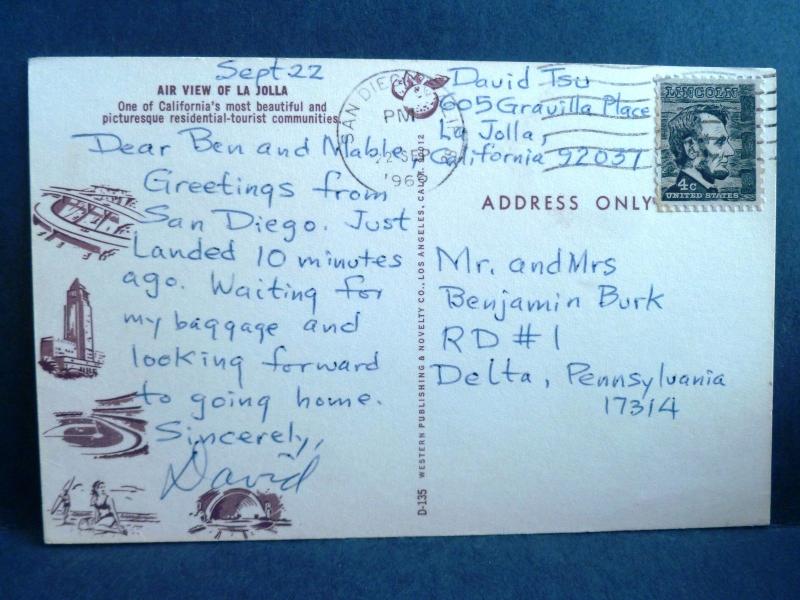 Sept 22
AIR VIEW OF LA JOLLA
One of California's most beautiful and
picturesque residential-tourist communities.
Dear Ben and Mable,
Greetings from
San Diego. Just
Landed 10 minutes
ago. Waiting for
my baggage and
looking forward
to going home.
Sincerely,
David
D-135 WESTERN PUBLISHING & NOVELTY CO., LOS ANGELES, CALIF. 90012
SAN DIEGO
PM
22 SEP
196
David Tsu
605 Gravilla Place
La Jolla,
California 92037
LINCOLN
4c
UNITED STATES
ADDRESS ONLY
Mr. and Mrs
Benjamin Burk
RD # 1
Delta, Pennsylvania
17314